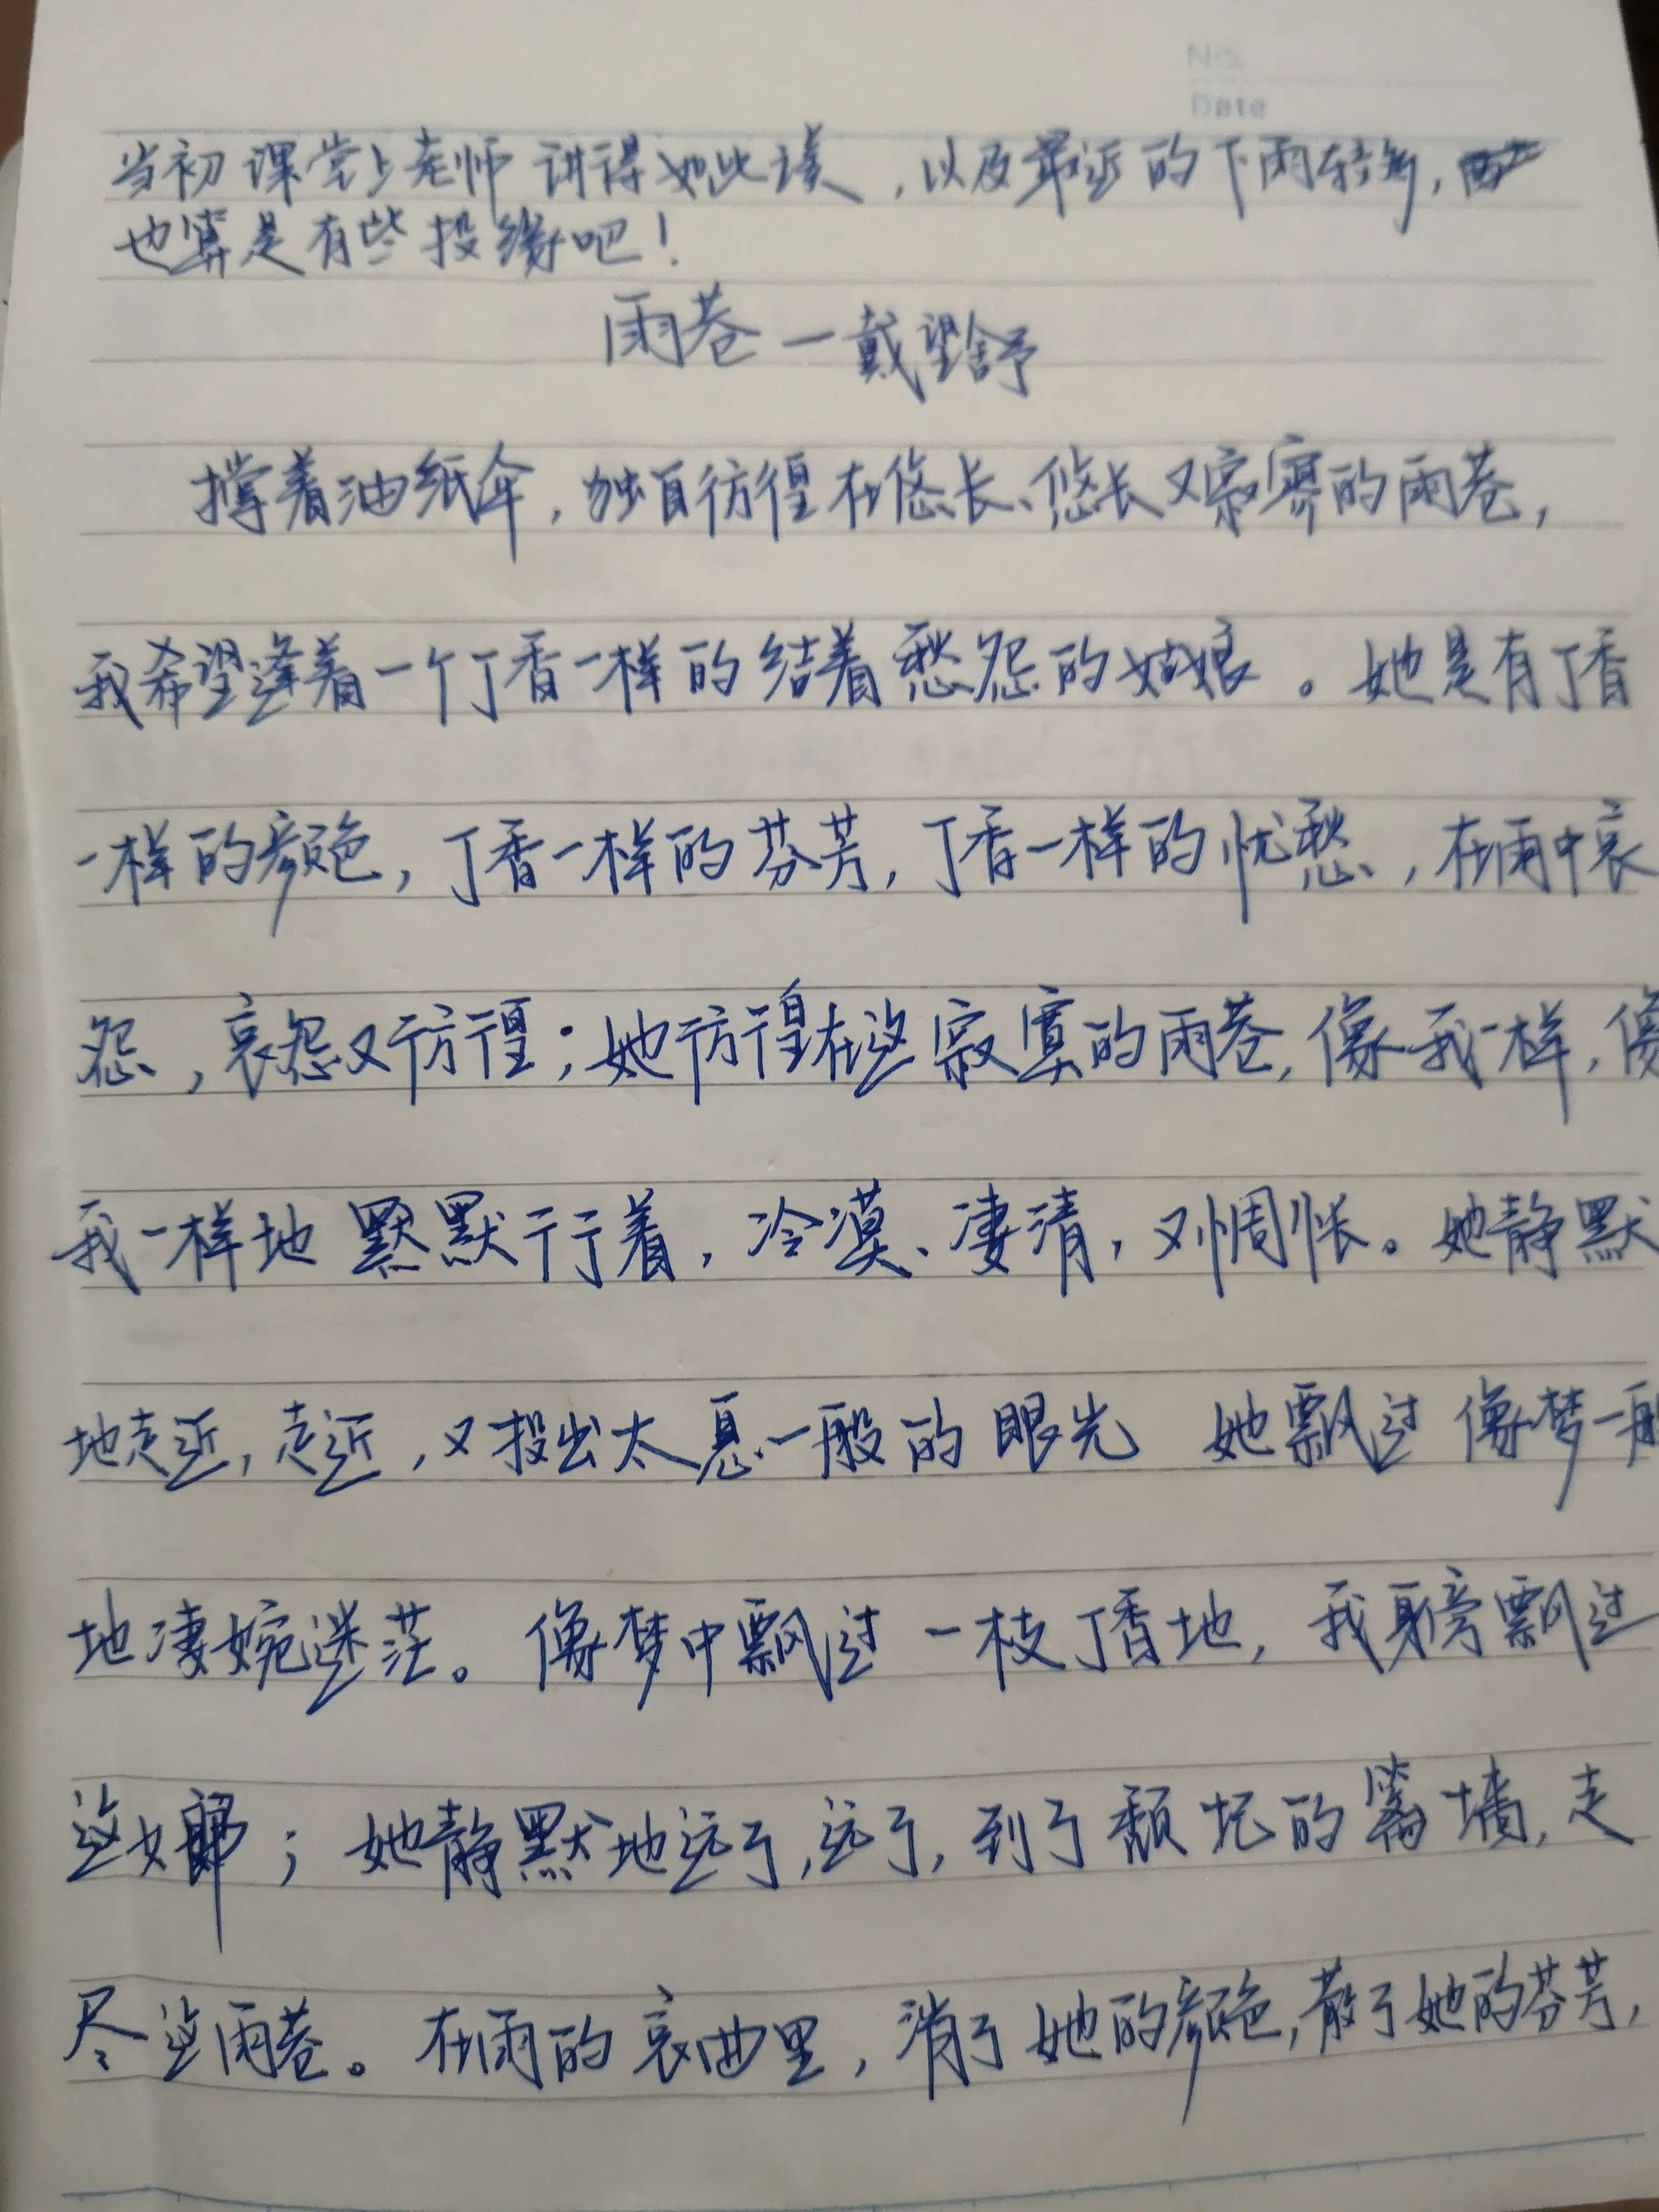 No.
Date
当初课堂上老师讲得如此美，以及最近的下雨较多，
也算是有些投缘吧！
雨巷一戴望舒
撑着油纸伞，独自彷徨在悠长、悠长又寂寥的雨巷，
我希望逢着一个丁香一样的结着愁怨的姑娘。她是有丁香
一样的颜色，丁香一样的芬芳，丁香一样的忧愁，在雨中哀
怨，哀怨又彷徨；她彷徨在这寂寞的雨巷，像我一样，像
我一样地默默行着，冷漠、凄清，又惆怅。她静默
地走近，走近，又投出太息一般的眼光 她飘过像梦一般
地凄婉迷茫。像梦中飘过一枝丁香地，我身旁飘过
这女郎；她静默地远了，远了，到了颓圮的篱墙，走
尽这雨巷。在雨的哀曲里，消了她的颜色，散了她的芬芳，